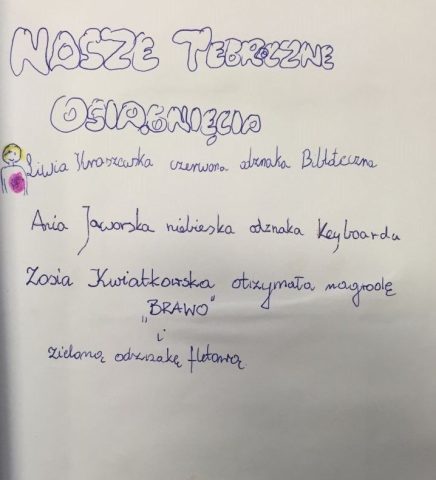 NASZE TEGROCZNE
OSIĄGNIĘCIA
Liwia Kraszewska czerwona odznaka Biblioteczna
Ania Jaworska niebieska odznaka Keyboardu
Zosia Kwiatkowska otrzymała nagrodę
„BRAWO"
i
zieloną odznakę fletową